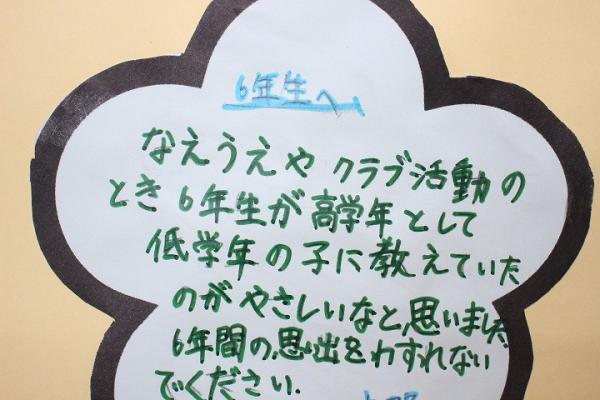 6年生へ
なえうえや クラブ活動の
とき6年生が高学年として
低学年の子に教えていた
のがやさしいなと、思いました。
6年間の、思い出をわすれない
でください.